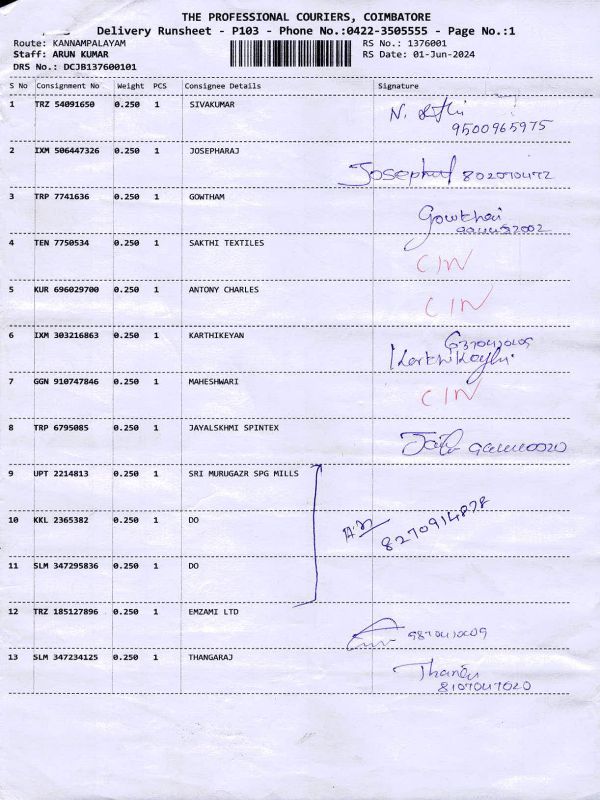 THE PROFESSIONAL COURIERS, COIMBATORE
Delivery Runsheet - P103 - Phone No.:0422-3505555 - Page No.:1
Route: KANNAMPALAYAM RS No.: 1376001
Staff: ARUN KUMAR RS Date: 01-Jun-2024
DRS No.: DCJB137600101
S No Consignment No Weight PCS Consignee Details Signature
1 TRZ 54091650 0.250 1 SIVAKUMAR N.
9500965975
2 IXM 506447326 0.250 1 JOSEPHARAJ
3 TRP 7741636 0.250 1 GOWTHAM
4 TEN 7750534 0.250 1 SAKTHI TEXTILES CIN
5 KUR 696029700 0.250 1 ANTONY CHARLES CIN
6 IXM 303216863 0.250 1 KARTHIKEYAN
7 GGN 910747846 0.250 1 MAHESHWARI CIN
8 TRP 6795085 0.250 1 JAYALSKHMI SPINTEX
9 UPT 2214813 0.250 1 SRI MURUGAZR SPG MILLS
10 KKL 2365382 0.250 1 DO 8270914878
11 SLM 347295836 0.250 1 DO
12 TRZ 185127896 0.250 1 EMZAMI LTD
13 SLM 347234125 0.250 1 THANGARAJ